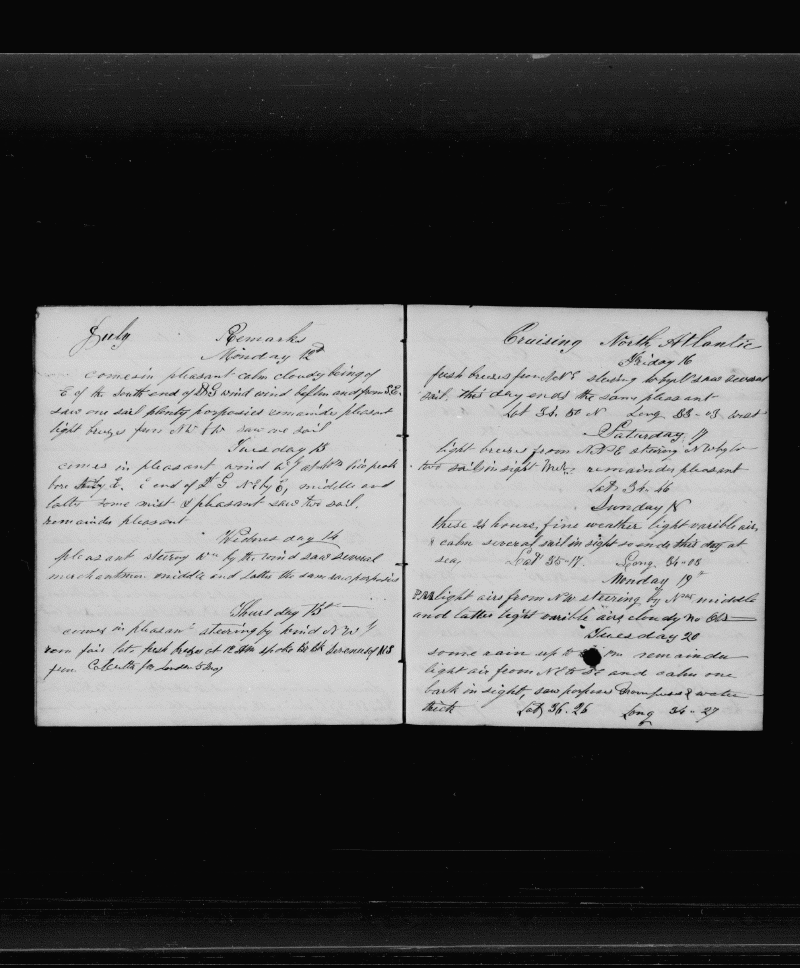 July Remarks
Monday 12th
comes in pleasant calm cloudy being of
E of the South end of wind wind baffling and from S.E.
saw one sail plenty porposies remainder pleasant
light breezes from NW saw one sail
Tuesday 13
comes in pleasant wind
E end of NE by E, middle and
latter some mist & pleasant saw two sail,
remainder pleasant
Wednesday 14
pleasant steering by the wind saw several
merchantmen middle and latter the same saw porposies
Thursday 15th
comes in pleasant steering by wind N W
fair late fresh breezes at 12 Am spoke
from Calcutta for London
Cruising North Atlantic
Friday 16
fresh breezes from steering saw several
sail, this day ends the same pleasant
Lat 34. N Long 33-03 west
Saturday, 17
light breezes from N.E. steering N W by W
two sail in sight remainder pleasant
Lat 34-46
Sunday 18
these 24 hours, fine weather light varible airs
& calm several sail in sight so ends this day at
sea, Lat 35-17. Long. 34-03
Monday 19th
PM light airs from N W steering by middle
and latter light varible airs cloudy no
Tuesday 20
some rain up to Pm remainder
light air from and calm one
bark in sight, saw porpoises & water
thick Lat 36-26 Long 34-27